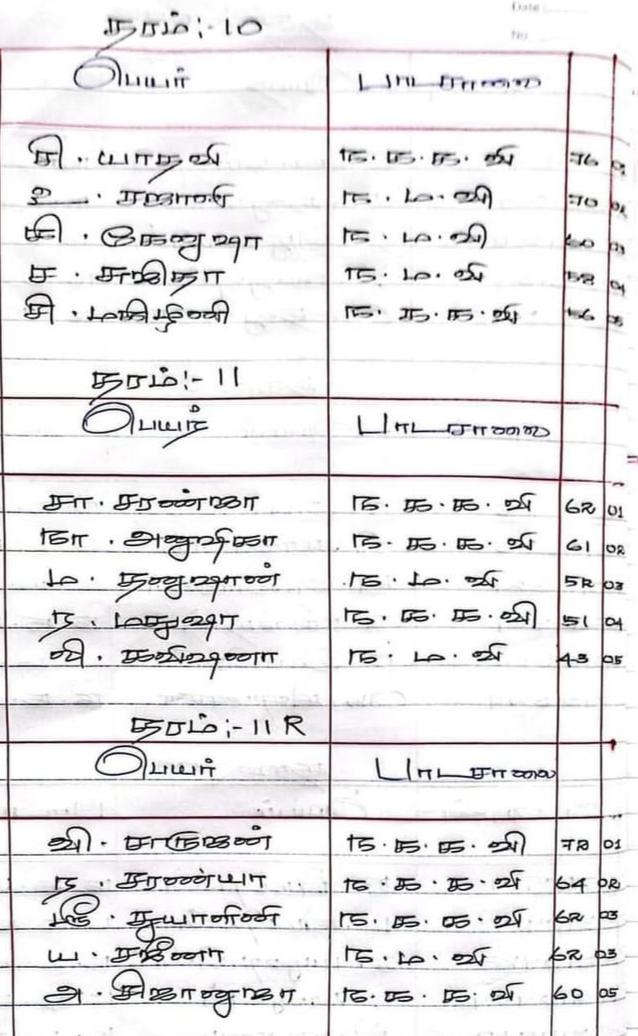 Date
No
தரம்:- 10
பெயர் பாடசாலை
சி. யாதவி ந. க. க. வி 76 01
உ. 70 02
சி. கேனுஷா ந. ம. வி 60 03
ச. சுஜிதா ந. ம. வி 58 04
சி. மகிழினி ந. க. க. வி 56 05
தரம்:- 11
பெயர் பாடசாலை
சா. சரண்ஜா ந. க. க. வி 62 01
நா. அனுஷிகா ந. க. க. வி 61 02
ம. தனுஷான் ந. ம. வி 52 03
ந. மதுஷா ந. க. க. வி 51 04
வி. கவிஷனா ந. ம. வி 43 05
தரம்:- 11 R
பெயர் பாடசாலை
வி. சாருஜன் ந. க. க. வி 72 01
ந. சரண்யா ந. க. க. வி 64 02
ஸ்ரீ. துயாளினி ந. க. க. வி 62 03
ய. சஜீனா ந. ம. வி 62 03
அ. சிஜானுஜா ந. க. க. வி 60 05